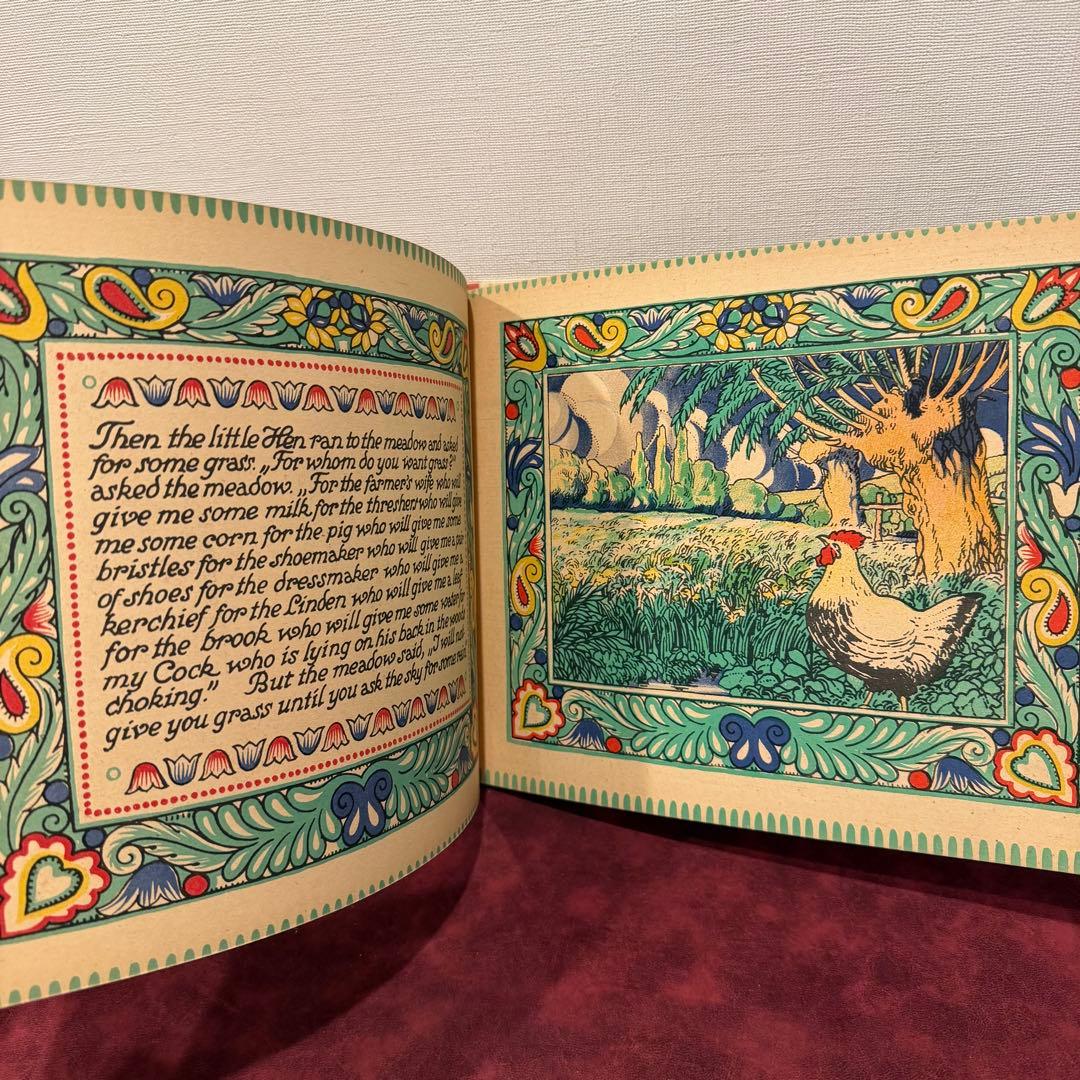 Then the little Hen ran to the meadow and asked
for some grass. „For whom do you want grass?"
asked the meadow. „For the farmer's wife who will
give me some milk for the thresher who will give
me some corn for the pig who will give me some
bristles for the shoemaker who will give me a pair
of shoes for the dressmaker who will give me a
kerchief for the Linden who will give me a leaf
for the brook who will give me some water for
my Cock who is lying on his back in the woods
choking." But the meadow said, „I will not
give you grass until you ask the sky for some rain.